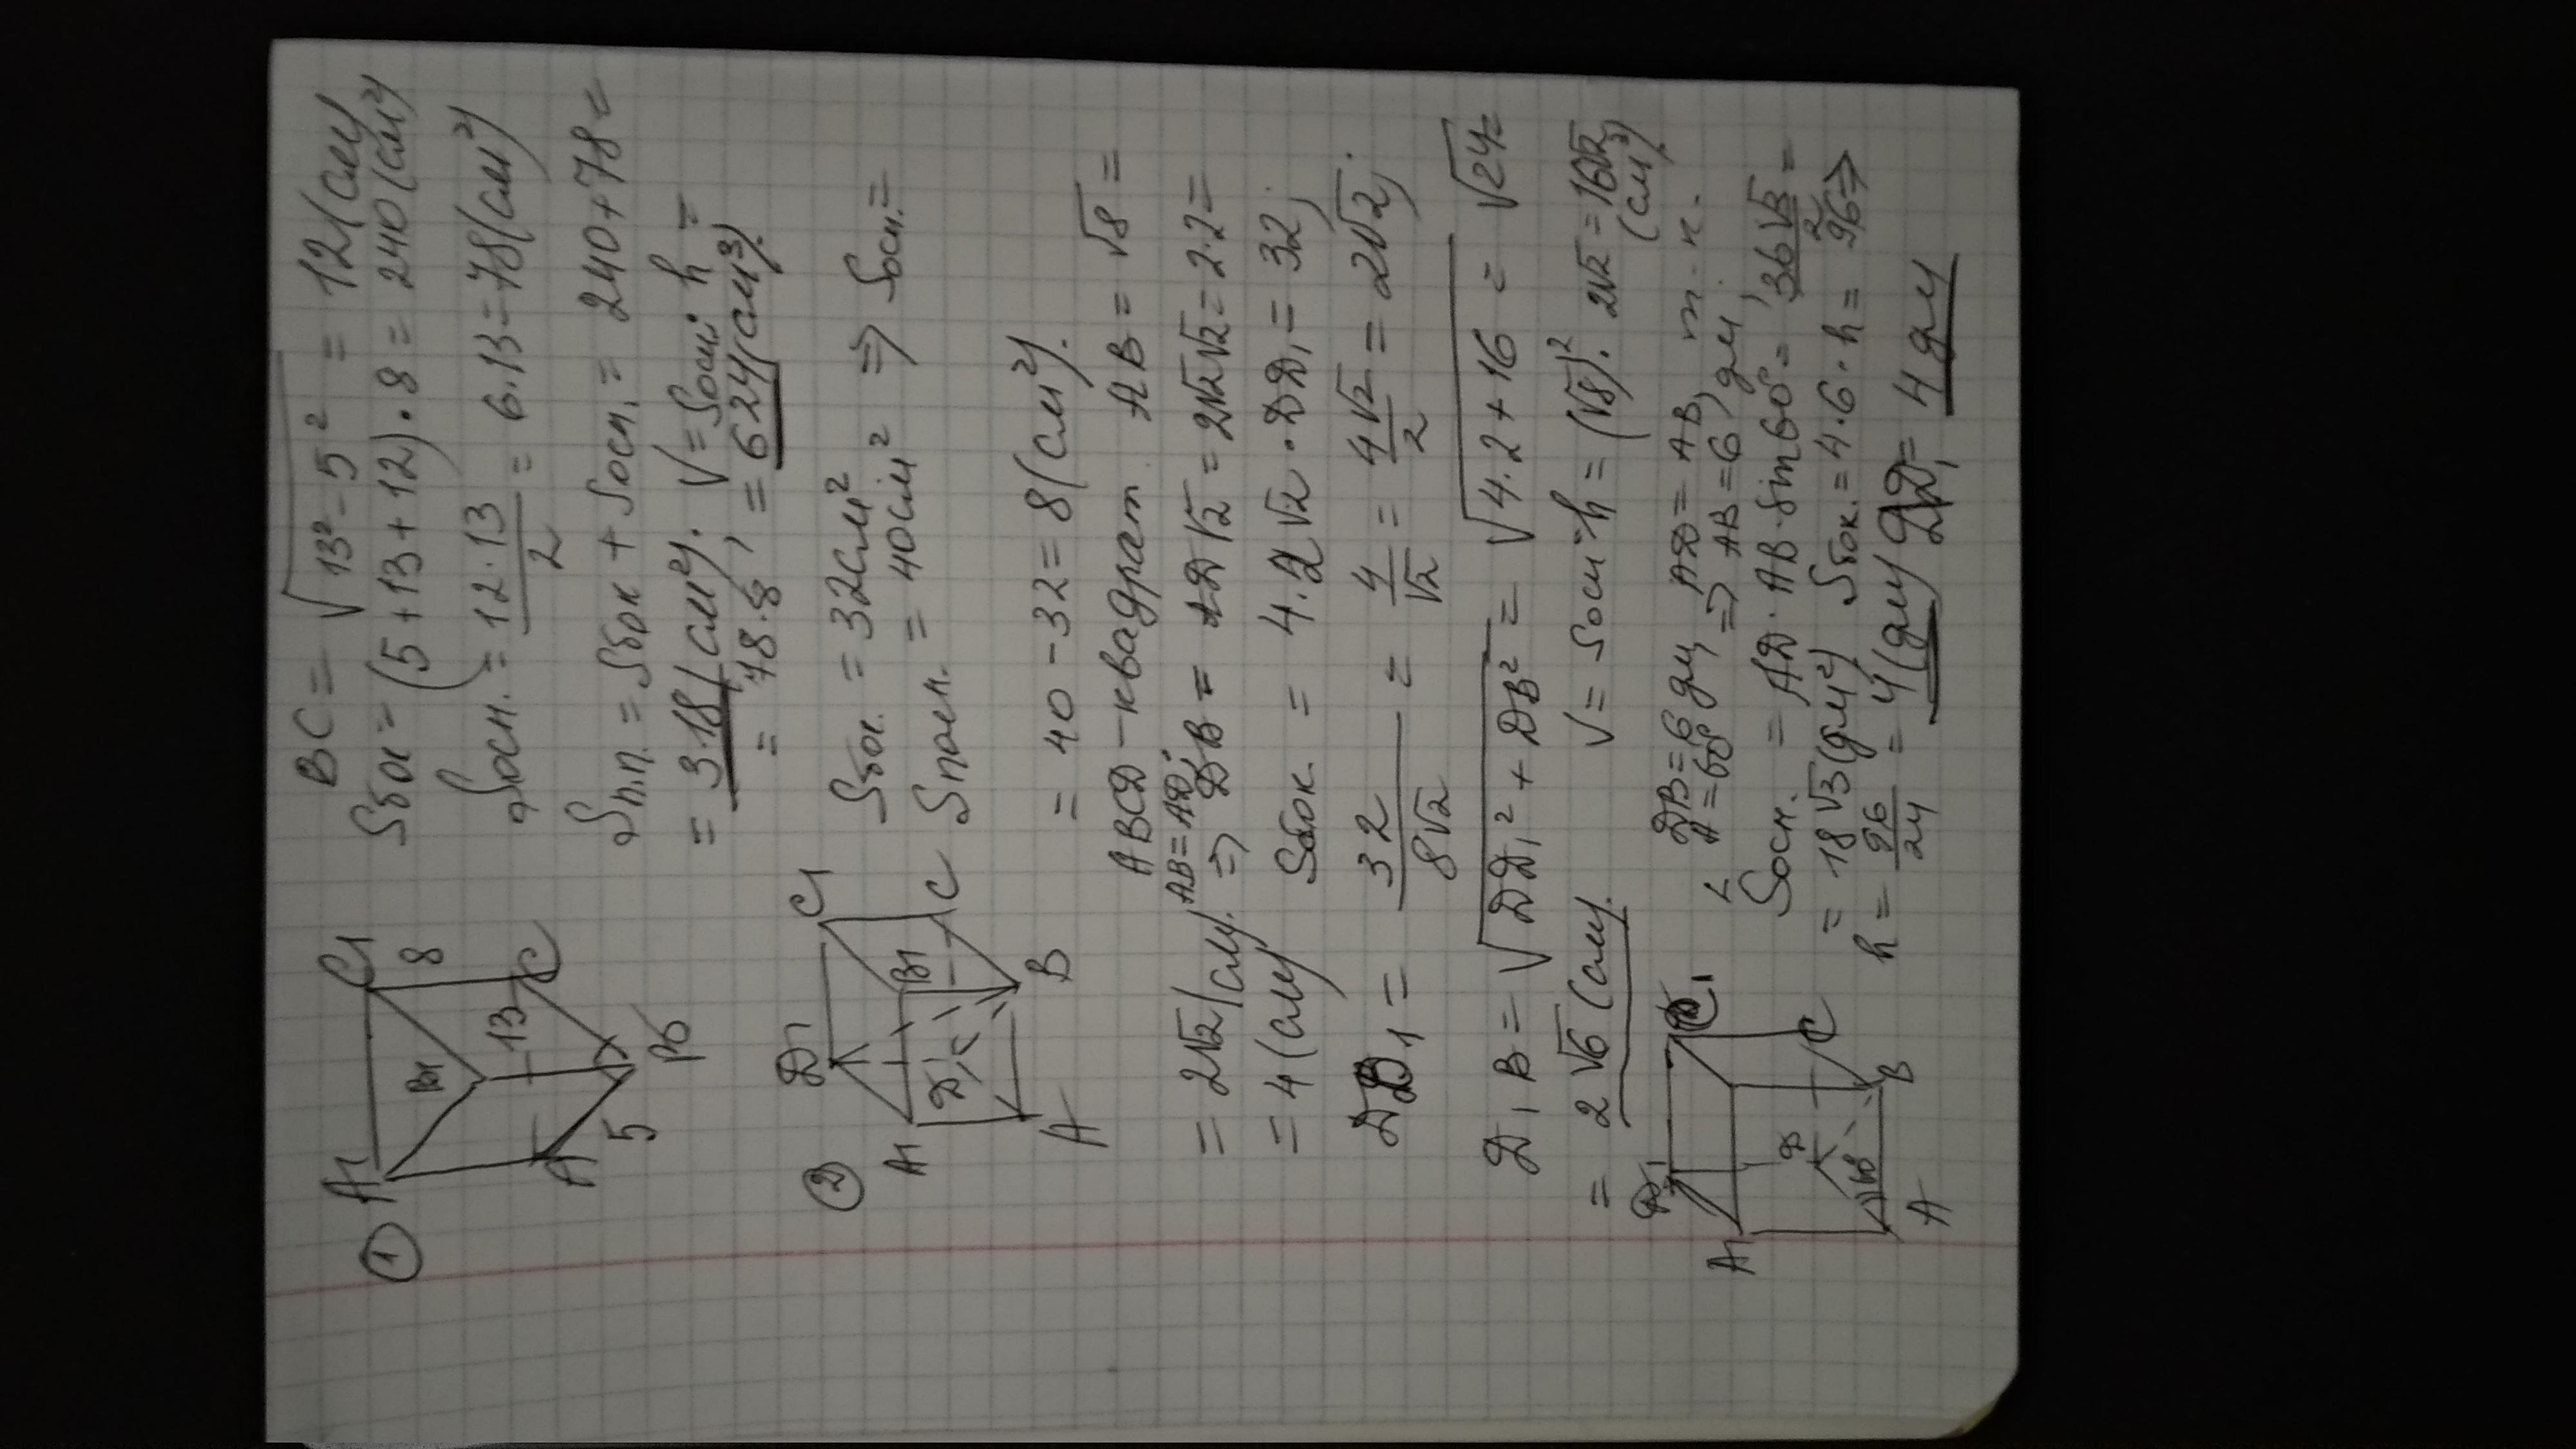 ① A1 C1 B1 8 13 A C B 5
BC = √13² - 5² = 12 (см)
Sбок = (5 + 13 + 12) · 8 = 240 (см²)
Sосн. = 12 · 13 / 2 = 6 · 13 = 78 (см²)
Sп.п. = Sбок + Sосн. = 240 + 78 =
= 318 (см²). V = Sосн · h =
= 78 · 8, = 624 (см³).
② D1 C1 A1 B1 D C A B
Sбок. = 32 см²
Sполн. = 40 см² => Sосн. =
= 40 - 32 = 8 (см²).
ABCD - квадрат. AB = √8 =
= 2√2 (см). AB = AD, => DB = AD√2 = 2√2√2 = 2·2 =
= 4 (см) Sбок. = 4 · 2√2 · DD₁ = 32,
DD₁ = 32 / 8√2 = 4 / √2 = 4√2 / 2 = 2√2,
D₁B = √DD₁² + DB² = √4·2 + 16 = √24 =
= 2√6 (см). V = Sосн · h = (√8)² · 2√2 = 16√2 (см³)
D1 C1 A1 D C A B
DB = 6 дм, AD = AB, т. к.
∠A = 60° => AB = 6, дм,
Sосн. = AD · AB · sin 60° = 36√3 / 2 =
= 18√3 (дм²) Sбок. = 4 · 6 · h = 96 =>
h = 96 / 24 = 4 (дм) DD₁ = 4 дм